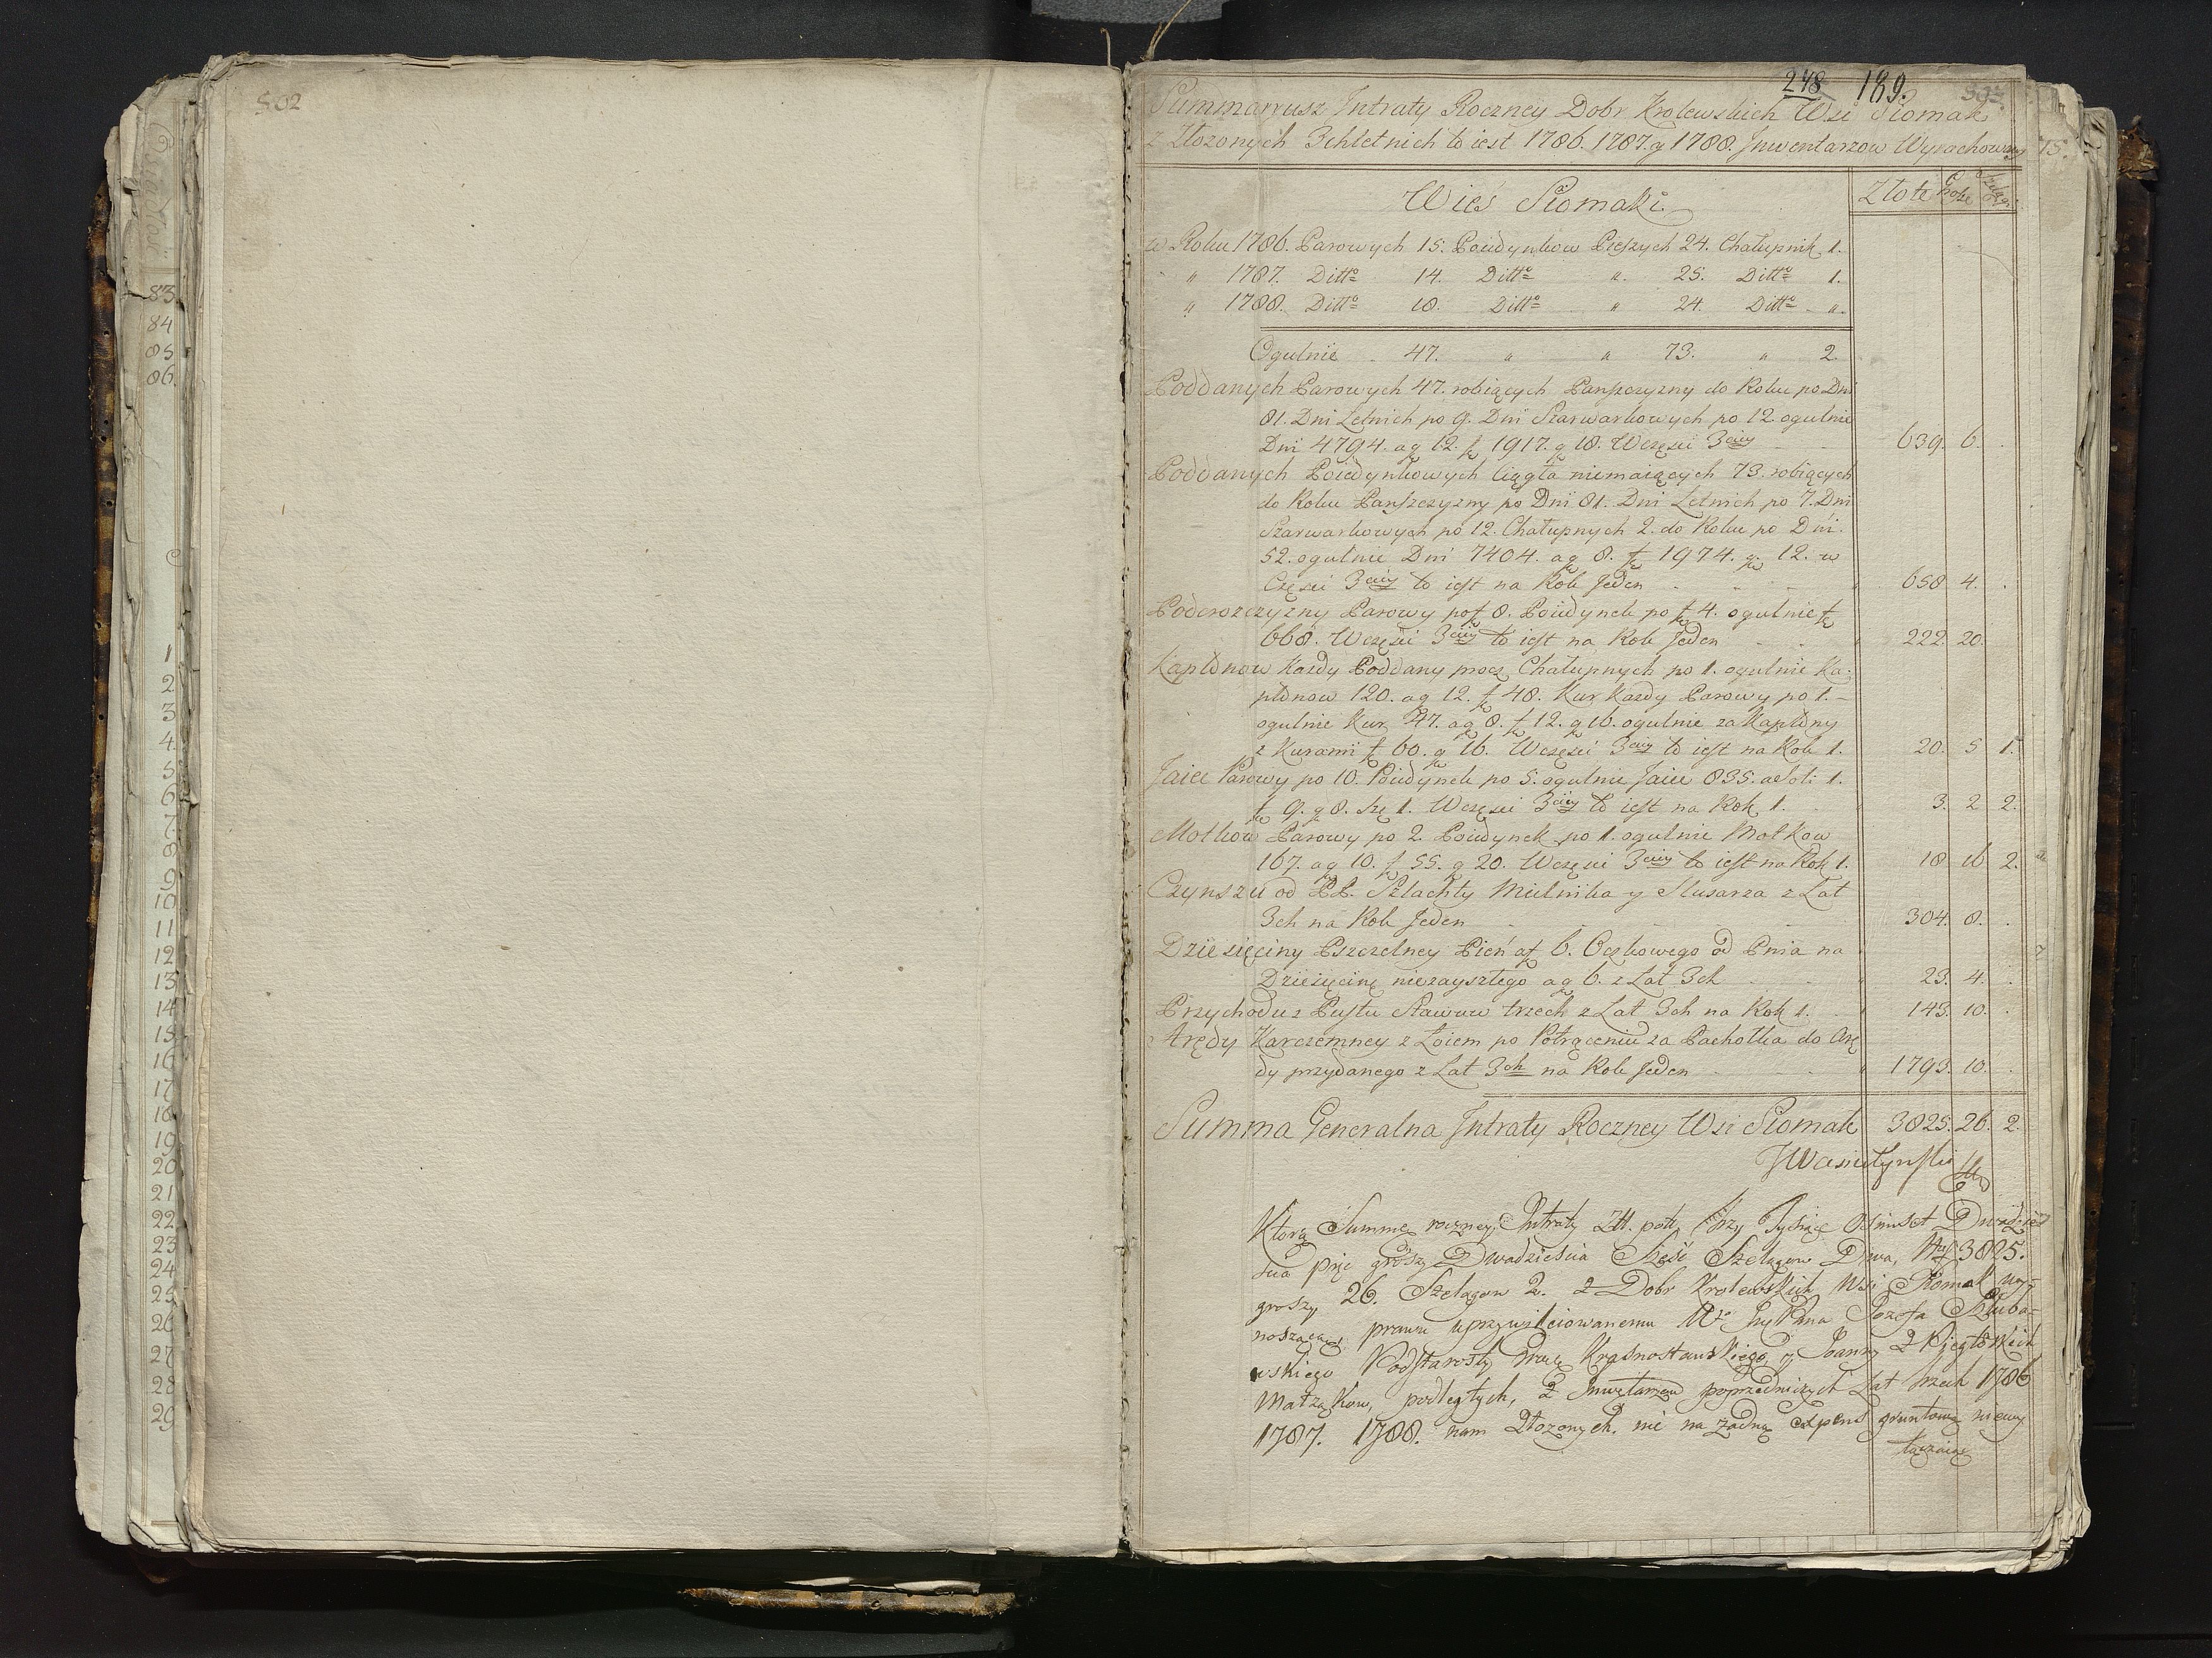 502
83
84
85
86.
1
2
3
4
5
6
7.
8
9
10
11
12
13
14
15
16
17
18
19
20
21
22
23
24
25
26
27
28
29
248 189.
Summaryusz Intraty Roczney Dobr Krolewskich Wsi Siomak
z Złozonych 3chletnich to iest 1786. 1787. y 1788. Jnwentarzow Wyrachowany
75.
Wieś Siomaki
Złote Grosze Szelągi
w Roku 1786. Parowych 15. Poiedynkow Pieszych 24. Chałupnik 1.
" 1787. Ditto 14. Ditto " 25. Ditto 1.
" 1788. Ditto 18. Ditto " 24. Ditto ".
Ogulnie 47. " " 73. " 2.
Poddanych Parowych 47. robiących Panszczyzny do Roku po Dni
81. Dni Letnich po 9. Dni Szarwarkowych po 12. ogulnie
Dni 4794. a g 12. f 1917. g 18. Wczęsci 3ciey 639. 6.
Poddanych Poiedynkowych Ciągła niemaiących 73. robiących
do Roku Panszczyzny po Dni 81. Dni Letnich po 7. Dni
Szarwarkowych po 12. Chałupnych 2. do Roku po Dni
52. ogulnie Dni 7404. a g 8. f 1974. g 12. w
Częsci 3ciey to iest na Rok Jeden 658 4.
Podorozczyzny Parowy po f 8. Poiedynek po f 4. ogulnie f
668. Wczęsci 3ciey to iest na Rok Jeden 222. 20.
Kapłonow Kazdy Poddany procz Chałupnych po 1. ogulnie Ka-
płonow 120. a g 12. f 48. Kur Kazdy Parowy po 1.
ogulnie Kur 47. a g 8. f 12. g 16. ogulnie za Kapłony
z Kurami f 60. g 16. Wczęsci 3ciey to iest na Rok 1. 20. 5 1.
Jaiec Parowy po 10. Poiedynek po 5. ogulnie Jaiec 835. a Soli 1.
f 9. g 8. szę 1. Wczęsci 3ciey to iest na Rok 1. 3. 2 2.
Motkow Parowy po 2. Poiedynek po 1. ogulnie Motkow
167. a g 10. f 55. g 20. Wczęsci 3ciey to iest na Rok 1. 18 16 2.
Czynszu od PP. Szlachty Mielnika y Slusarza z Lat
3ch na Rok Jeden 304. 8.
Dziesięciny Pszczelney Pień a f 6. Oczkowego od Pnia na
Dziesięcinę niezayszłego a g 6. z Lat 3ch 23. 4.
Przychodu z Pustu Stawow trzech z Lat 3ch na Rok 1. 143. 10.
Arędy Karczemney z Łoiem po Potrąceniu za Pachołka do Arę
dy przydanego z Lat 3ch na Rok Jeden 1793. 10.
Summa Generalna Intraty Roczney Wsi Siomak 3825. 26. 2.
JWasiutyński
Ktorą Summę roczney Intraty Zlt. pol. Trzy Tysiąc Osimset Dwadzie
scia pięc groszy Dwadziescia Szesc Szelągow Dwa, 3825.
groszy 26. Szelągow 2. z Dobr Krolewskich Wsi Siomak wy-
noszącą, prawu uprzywileiowanemu Józefa
wskiego Podstarosty Krasnostawskiego, y Joanny z
Małząkow, podległych, z Inwętarzow poprzedniczych Lat trzech 1786
1787. 1788. nam Złozonych. nic na zadną expens gruntową niewy
łączaiąc